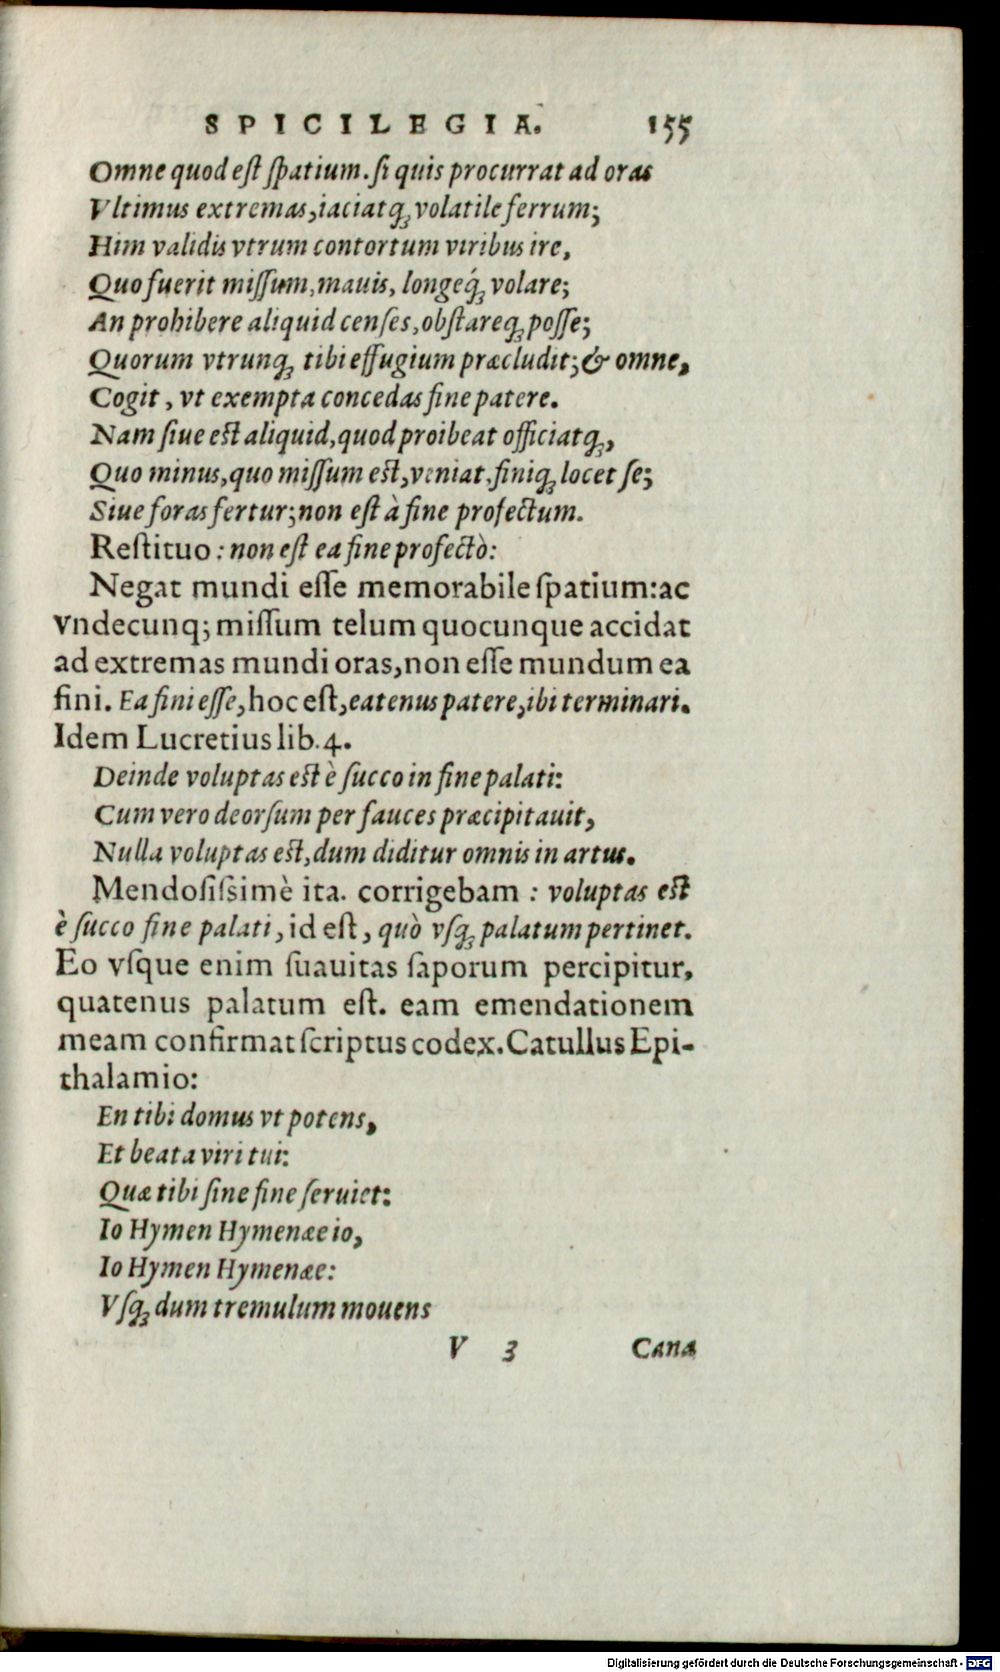 SPICILEGIA. 155
Omne quod eſt ſpatium. ſi quis procurrat ad oras
Vltimus extremas, iaciatq; volatile ferrum;
Him validis vtrum contortum viribus ire,
Quo fuerit miſſum, mauis, longeq́; volare;
An prohibere aliquid cenſes, obſtareq; poſſe;
Quorum vtrunq; tibi effugium præcludit; & omne,
Cogit, vt exempta concedas fine patere.
Nam ſiue eſt aliquid, quod proibeat officiatq;,
Quo minus, quo miſſum eſt, veniat, finiq; locet ſe;
Siue foras fertur; non eſt à fine profectum.
Reſtituo: non eſt ea fine profectò:
Negat mundi eſſe memorabile ſpatium: ac
vndecunq; miſſum telum quocunque accidat
ad extremas mundi oras, non eſſe mundum ea
fini. Ea fini eſſe, hoc eſt, eatenus patere, ibi terminari.
Idem Lucretius lib. 4.
Deinde voluptas eſt è ſucco in fine palati:
Cum vero deorſum per fauces præcipitauit,
Nulla voluptas eſt, dum diditur omnis in artus.
Mendoſiſsimè ita. corrigebam: voluptas eſt
è ſucco fine palati, id eſt, quò vſq; palatum pertinet.
Eo vſque enim ſuauitas ſaporum percipitur,
quatenus palatum eſt. eam emendationem
meam confirmat ſcriptus codex. Catullus Epi-
thalamio:
En tibi domus vt potens,
Et beata viri tui:
Quæ tibi ſine fine ſeruiet:
Io Hymen Hymenæe io,
Io Hymen Hymenæe:
Vſq; dum tremulum mouens
V 3 Cana
Digitalisierung gefördert durch die Deutsche Forschungsgemeinschaft - DFG